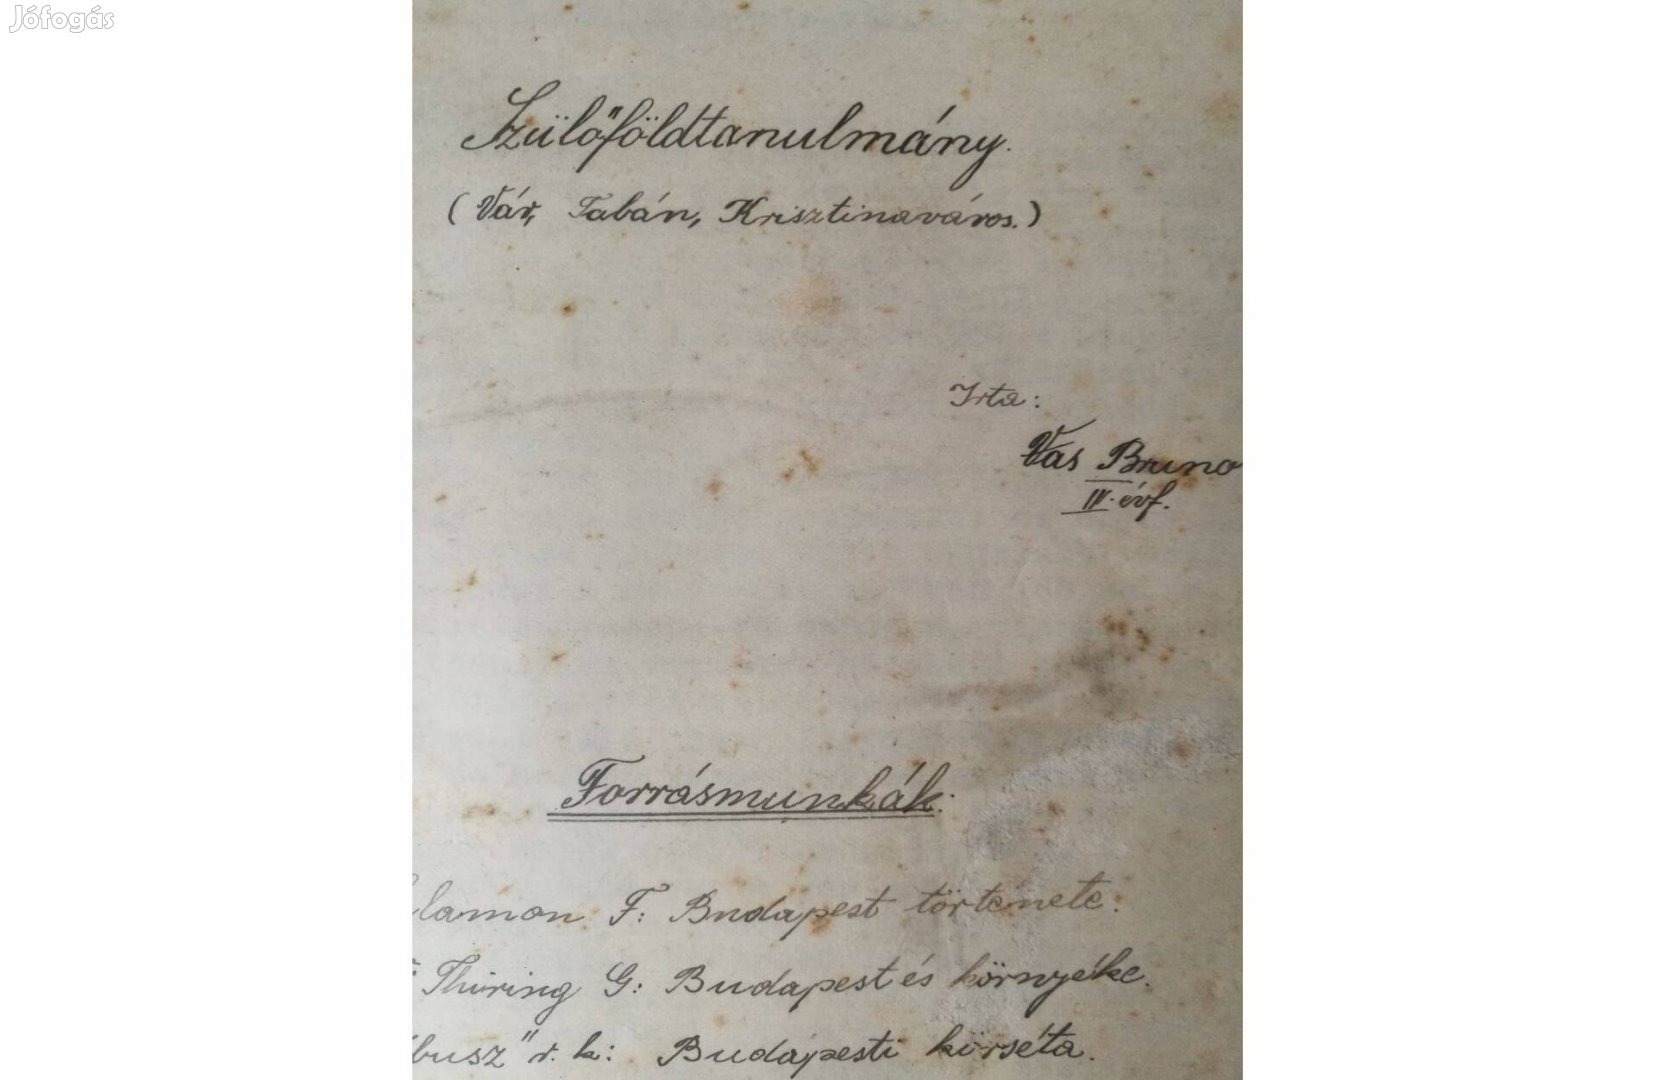 Jófogás
Szülőföldtanulmány.
(Vár, Tabán, Krisztinaváros.)
Irta:
Vas Bruno
IV. évf.
Forrásmunkák:
lamon F: Budapest története.
Thirring G: Budapest és környéke.
busz" r. k: Budapesti körséta.